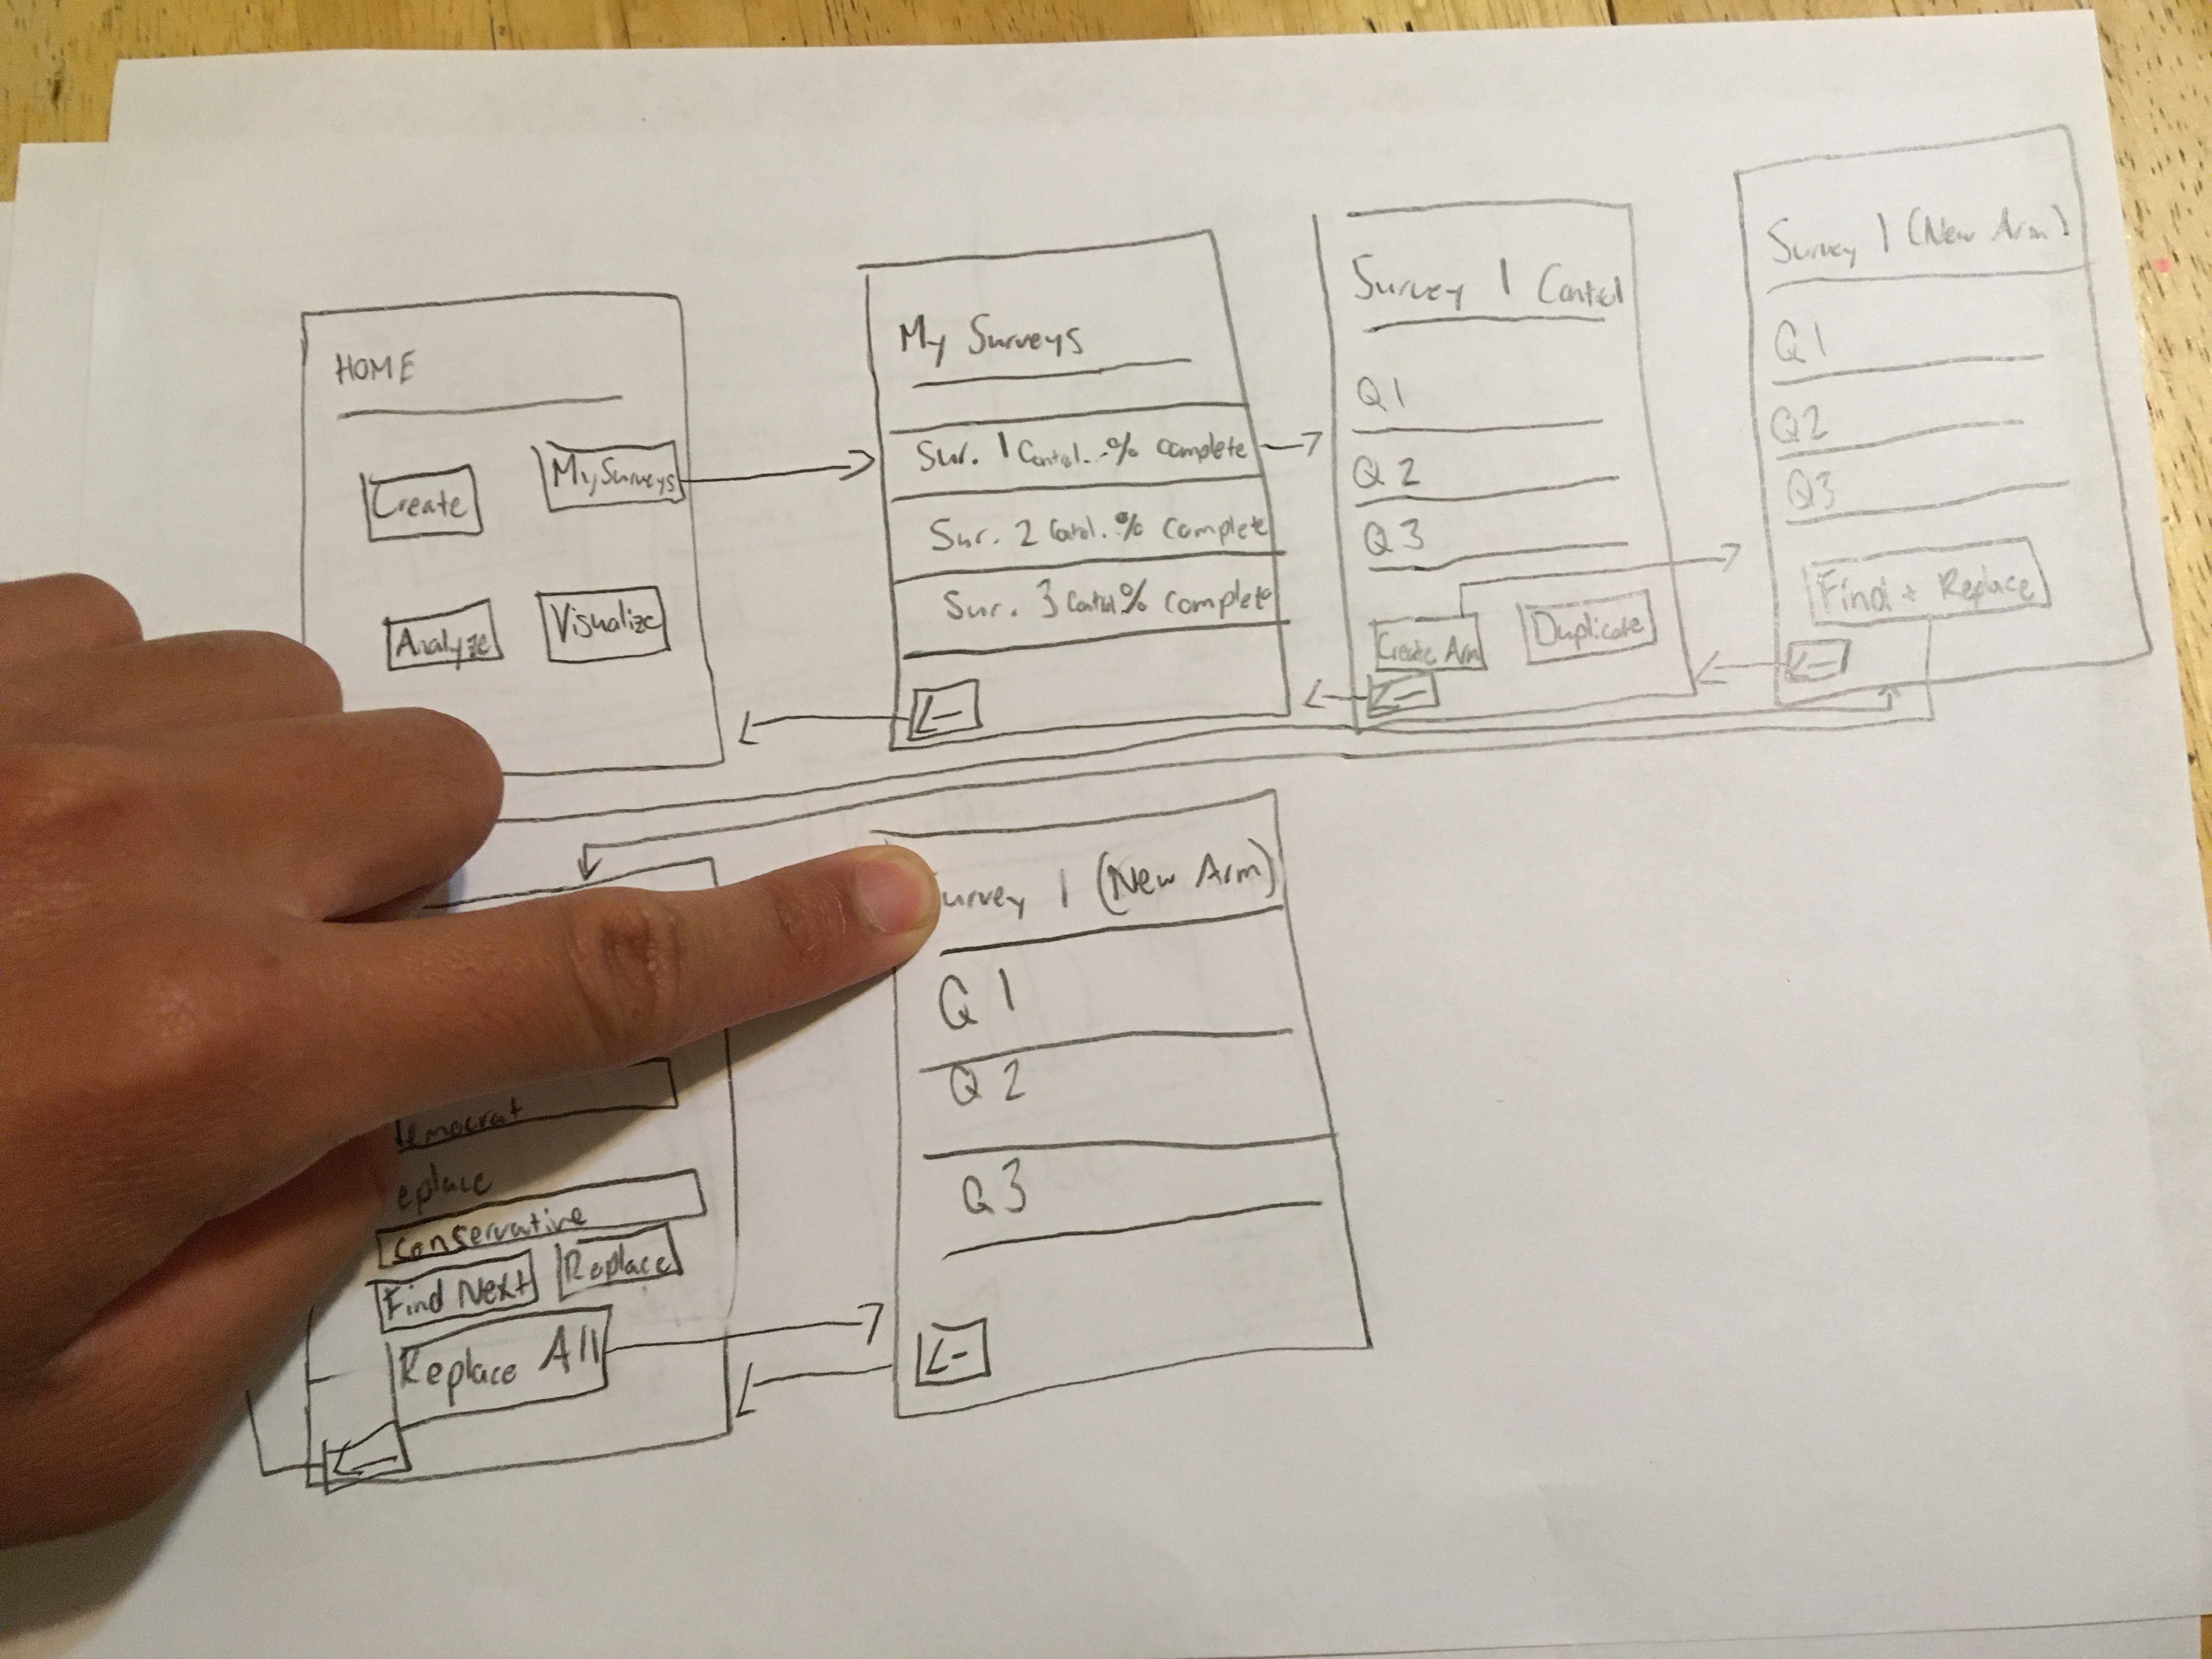 HOME
Create
My Surveys
Analyze
Visualize
My Surveys
Sur. 1 Control...% complete
Sur. 2 Control. % complete
Sur. 3 Control % complete
←
Survey 1 Control
Q1
Q2
Q3
Create Arm
Duplicate
←
Survey 1 (New Arm)
Q1
Q2
Q3
Find + Replace
←
emocrat
eplace
conservative
Find Next
Replace
Replace All
←
urvey 1 (New Arm)
Q1
Q2
Q3
←